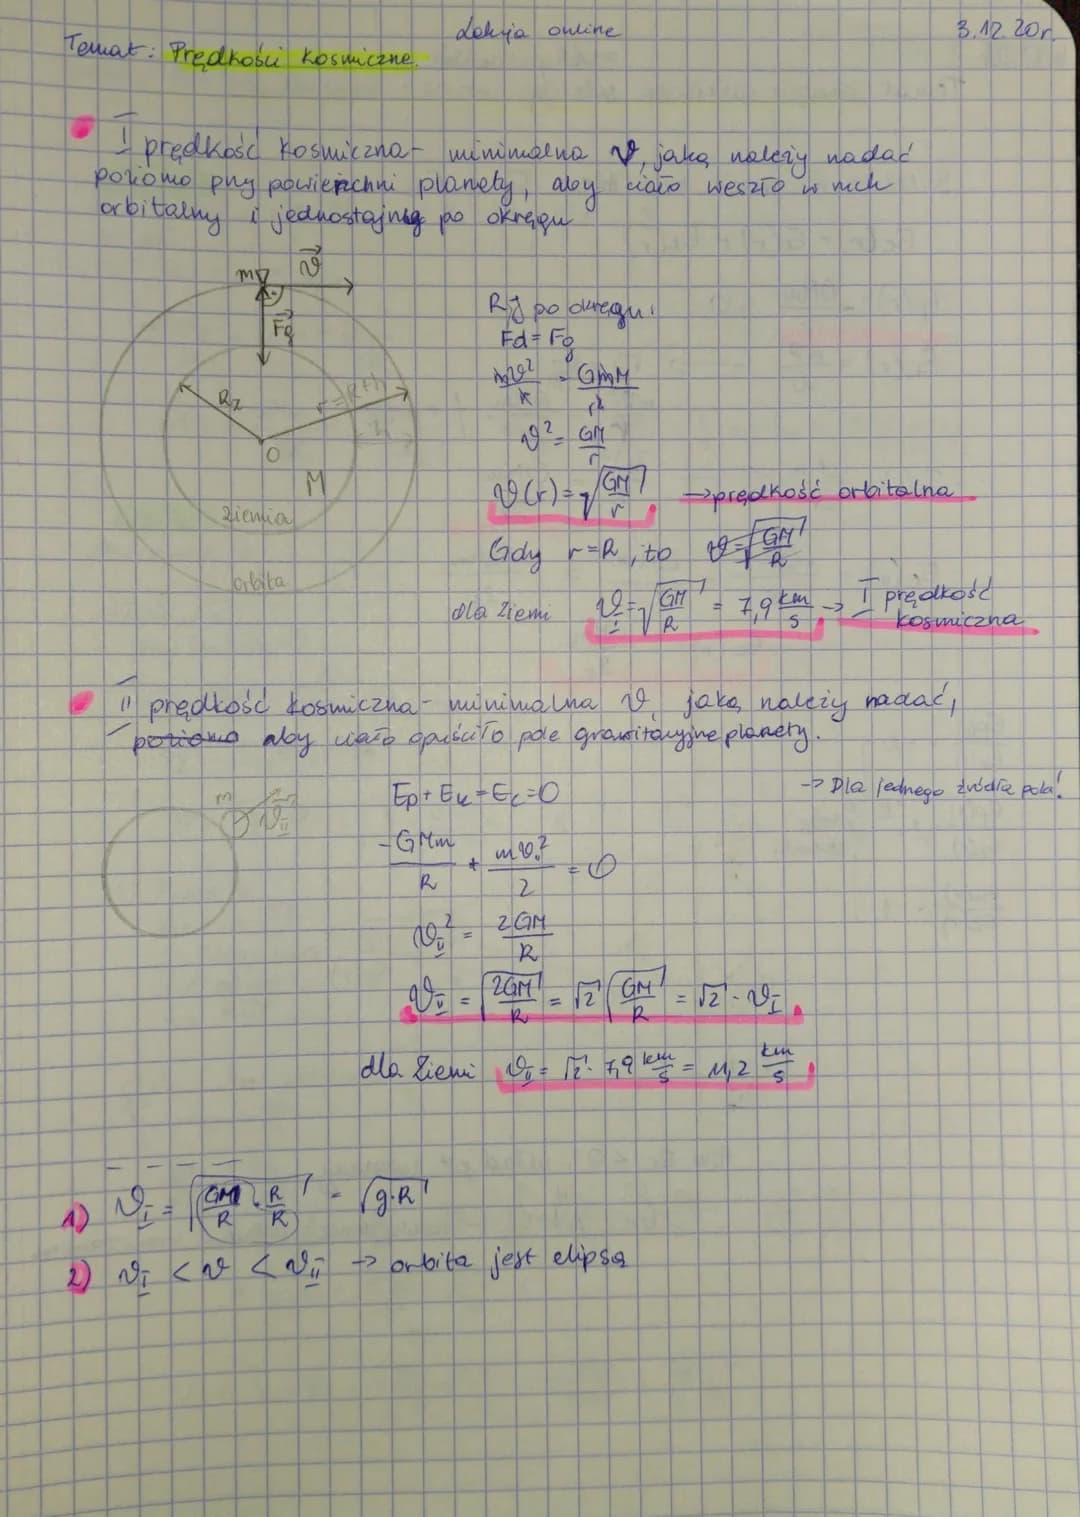 Lekcja online
3.12.20r.
Temat: Prędkości kosmiczne.
I prędkość kosmiczna - minimalna v, jaką należy nadać
poziomo przy powierzchni planety, aby ciało weszło w ruch
orbitalny i jednostajny po okręgu
m
v
Fg
Rz
r=R+h
h
O
M
Ziemia
orbita
RJ po okręgu:
Fd = Fg
mv²/r = GmM/r²
v² = GM/r
v(r) = √(GM/r) → prędkość orbitalna
Gdy r=R, to v=√(GM/R)
dla Ziemi v_I = √(GM/R) = 7,9 km/s → I prędkość
kosmiczna
II prędkość kosmiczna - minimalna v, jaką należy nadać,
poziomo aby ciało opuściło pole grawitacyjne planety.
→ Dla jednego źródła pola!
m
v_II
Ep + Ek = Ec = 0
-GMm/R + mv²/2 = 0
v_II² = 2GM/R
v_II = √(2GM/R) = √2 √(GM/R) = √2 · v_I
dla Ziemi v_II = √2 · 7,9 km/s = 11,2 km/s
1) v_I = √(GM/R · R/R) = √(g·R)
2) v_I < v < v_II → orbita jest elipsą